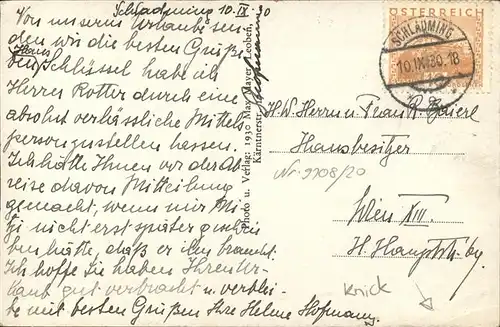 Schladming 10.IX.30
Von unserm Urlaube sen-
den wir die besten Grüße.
Haus
den Schlüssel habe ich
Herrn Rotter durch eine
absolut verlässliche Mittels-
person zustellen lassen.
Ich hätte Ihnen vor der Ab-
reise davon Mitteilung
gemacht, wenn mir Mi-
tzi nicht erst später geschrie-
ben hätte, daß er ihn braucht.
Ich hoffe Sie haben Ihren Ur-
laub gut verbracht u. verblei-
be mit besten Grüßen Ihre Helene Hofmann
Photo u. Verlag: 1930 Max Mayer, Leoben,
Kärntnerstr.
ÖSTERREICH
SCHLADMING
10.IX.30.18
H. W. Herrn u. Frau R.
Hausbesitzer
Nr. 9908/20
Wien XIII.
H. Hauptstr.
Knick